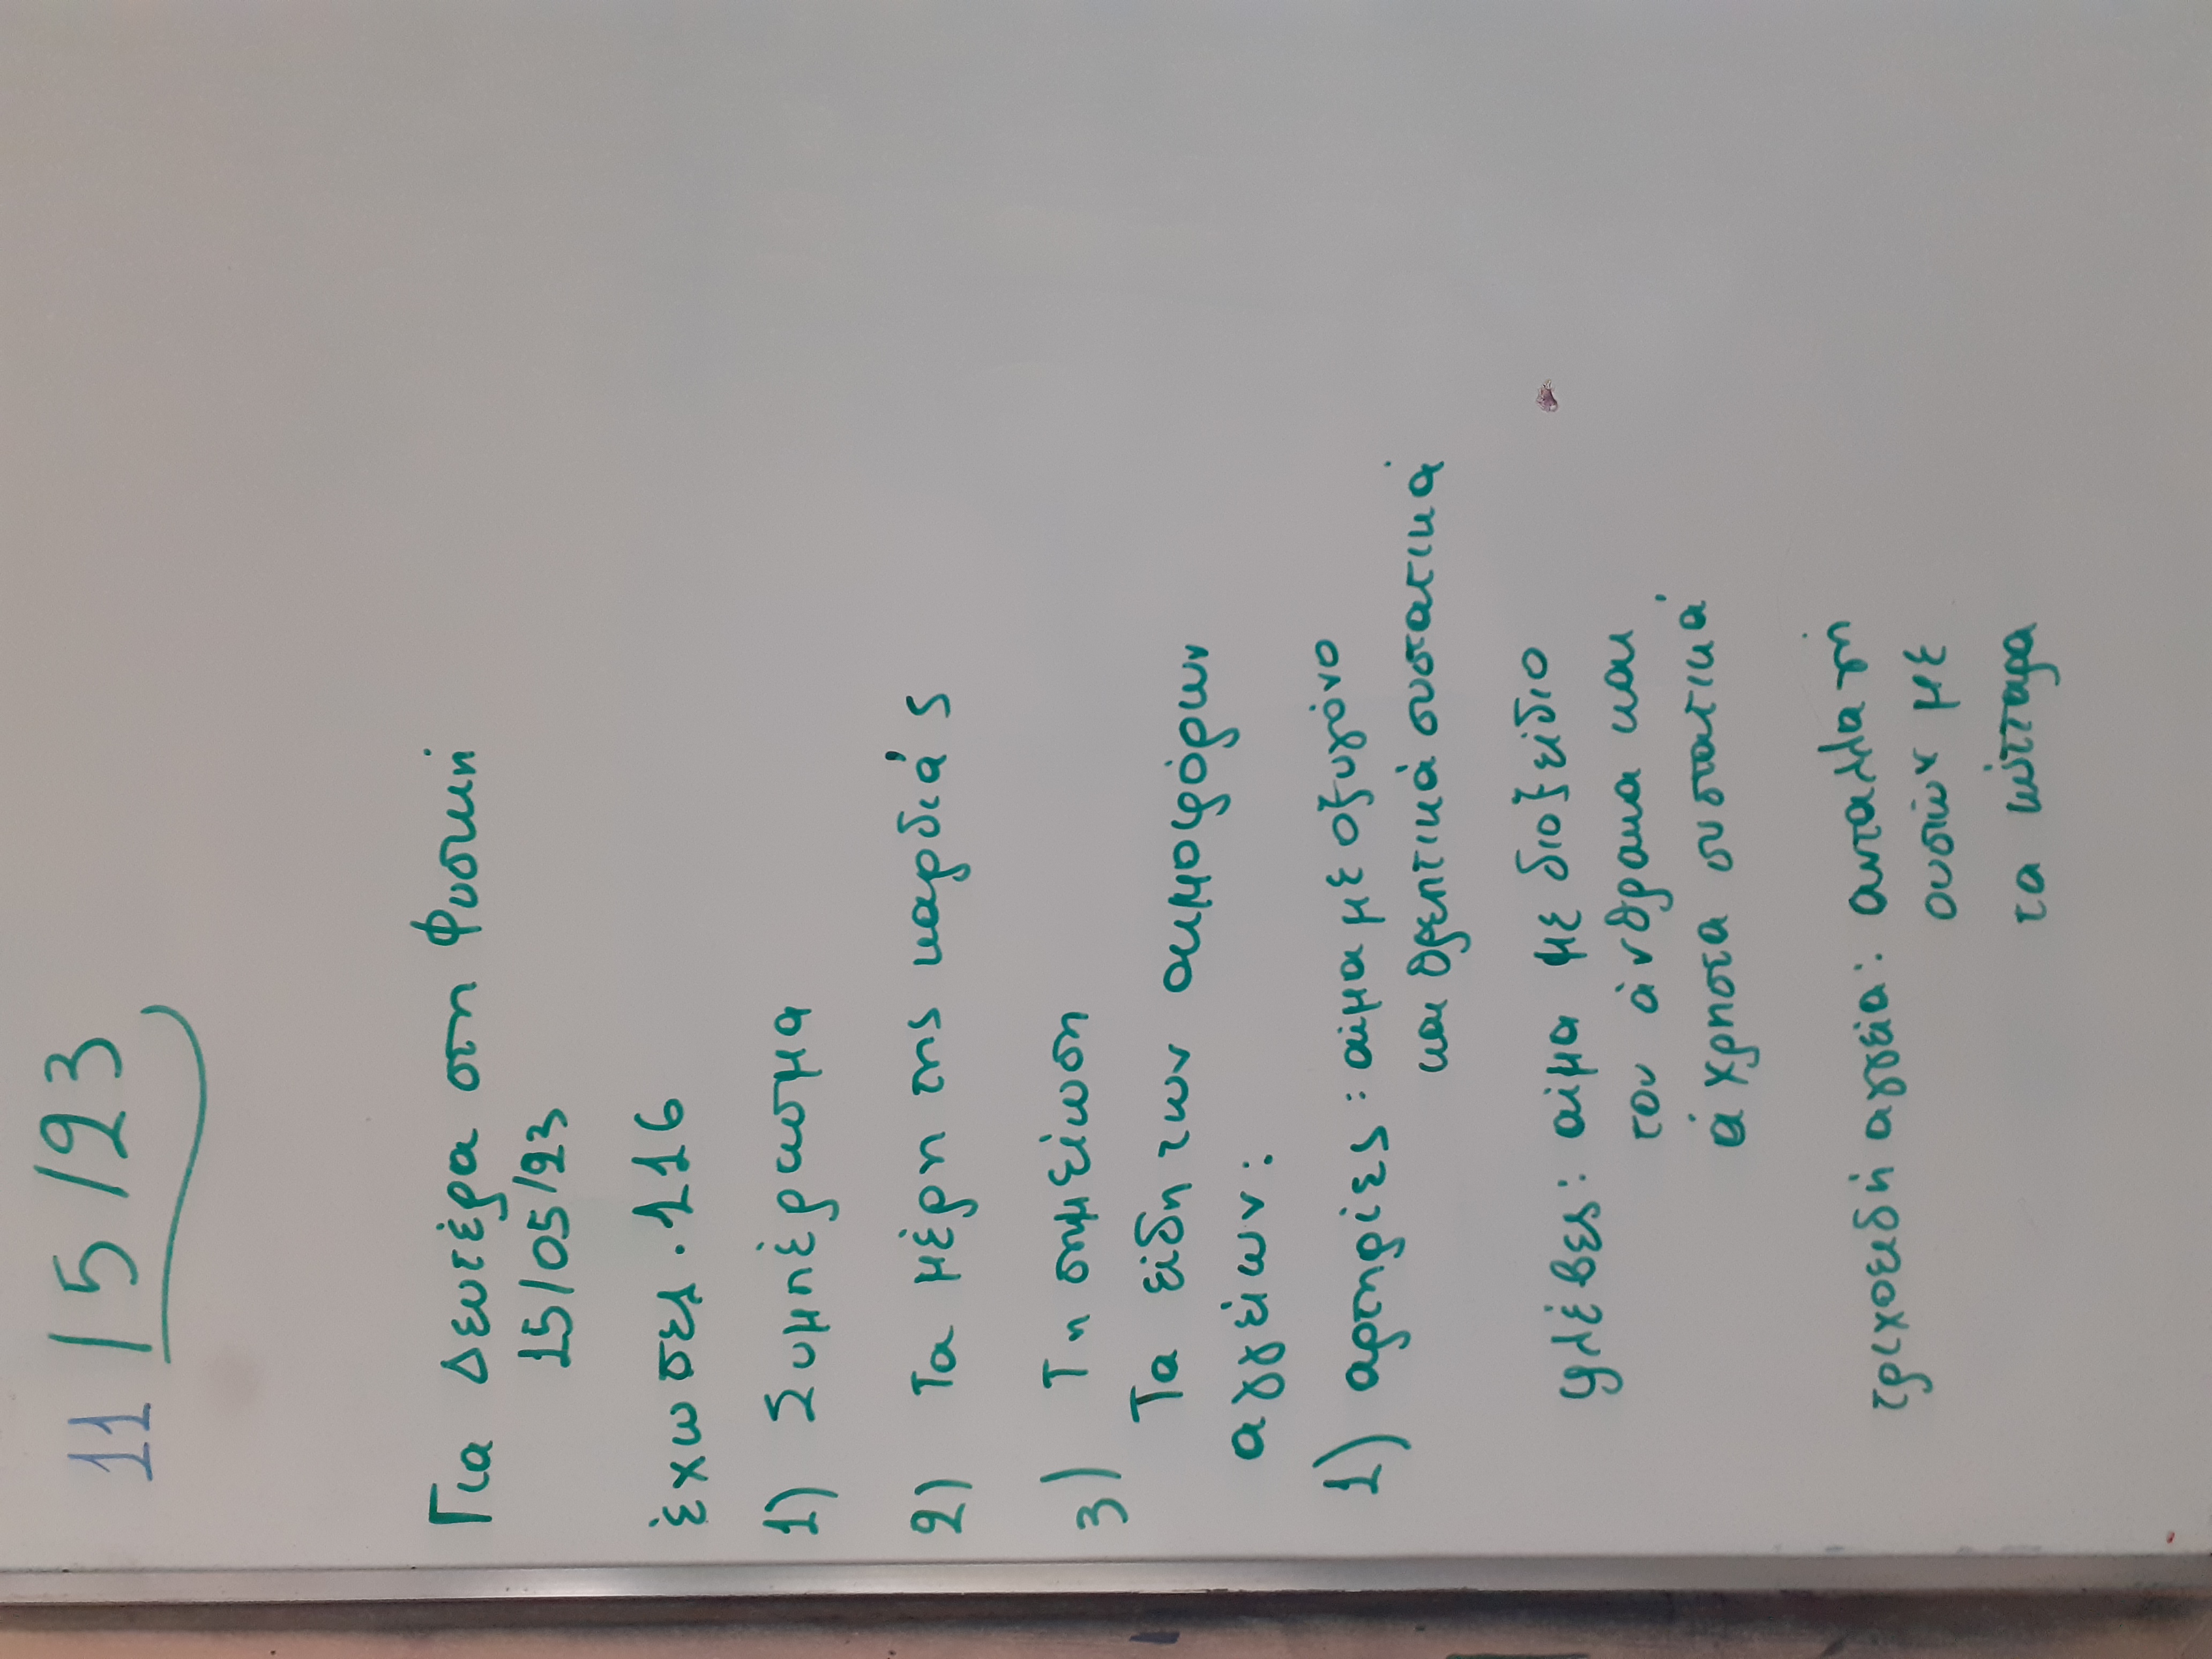 11/5/23
Για Δευτέρα στη Φυσική
15/05/23
έχω σελ. 116
1) Συμπέρασμα
2) Τα μέρη της καρδιάς
3) Τη σημείωση
Τα είδη των αιμοφόρων
αγγείων:
1) αρτηρίες: αίμα με οξυγόνο
και θρεπτικά συστατικά
φλέβες: αίμα με διοξείδιο
του άνθρακα και
άχρηστα συστατικά
τριχοειδή αγγεία: ανταλλαγή
ουσιών με
τα κύτταρα